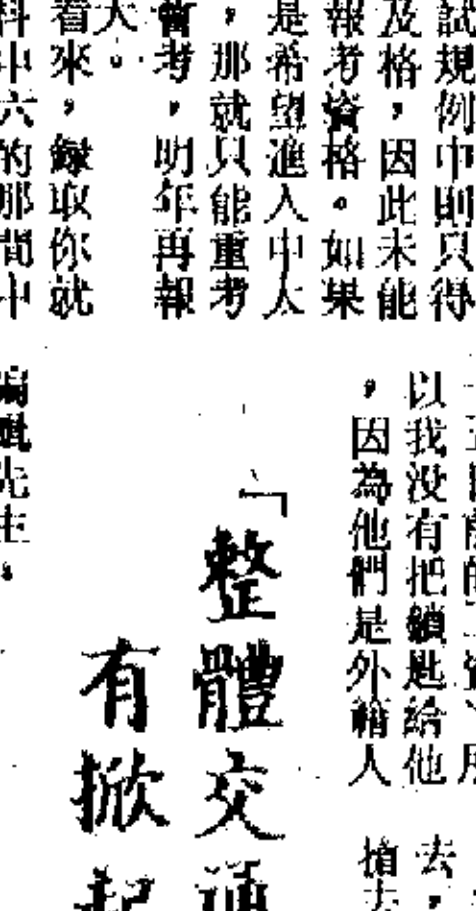 試規例中則只得
及格，因此未能
報考資格。如果
是希望進入中大
，那就只能重考
會考，明年再報
大。
看來，錄取你就
科中六的那間中
以我没有把鎖匙給他
，因為他們是外籍人
去，
「整體交通
有掀起
編輯先生：